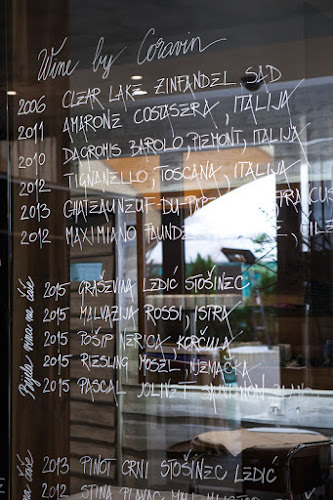 Wine by Coravin
2006 CLEAR LAKE ZINFANDEL, SAD
2011 AMARONE COSTASERA, ITALIJA
2010 DAGROMIS BAROLO, PIEMONT, ITALIJA
2012 TIGNANELLO, TOSCANA, ITALIJA
2013 CHATEAUNEUF-DU-PAPE
2012 MAXIMIANO
Bijela vina na čaše
2015 GRAŠEVINA LEDIĆ STOŠINEC
2015 MALVAZIJA ROSSI, ISTRA
2015 POŠIP NERICA, KORČULA
2015 RIESLING MOSEL, NJEMAČKA
2015 PASCAL JOLIVET
na čaše
2013 PINOT CRNI STOŠINEC LEDIĆ
2012 STINA PLAVAC MALI